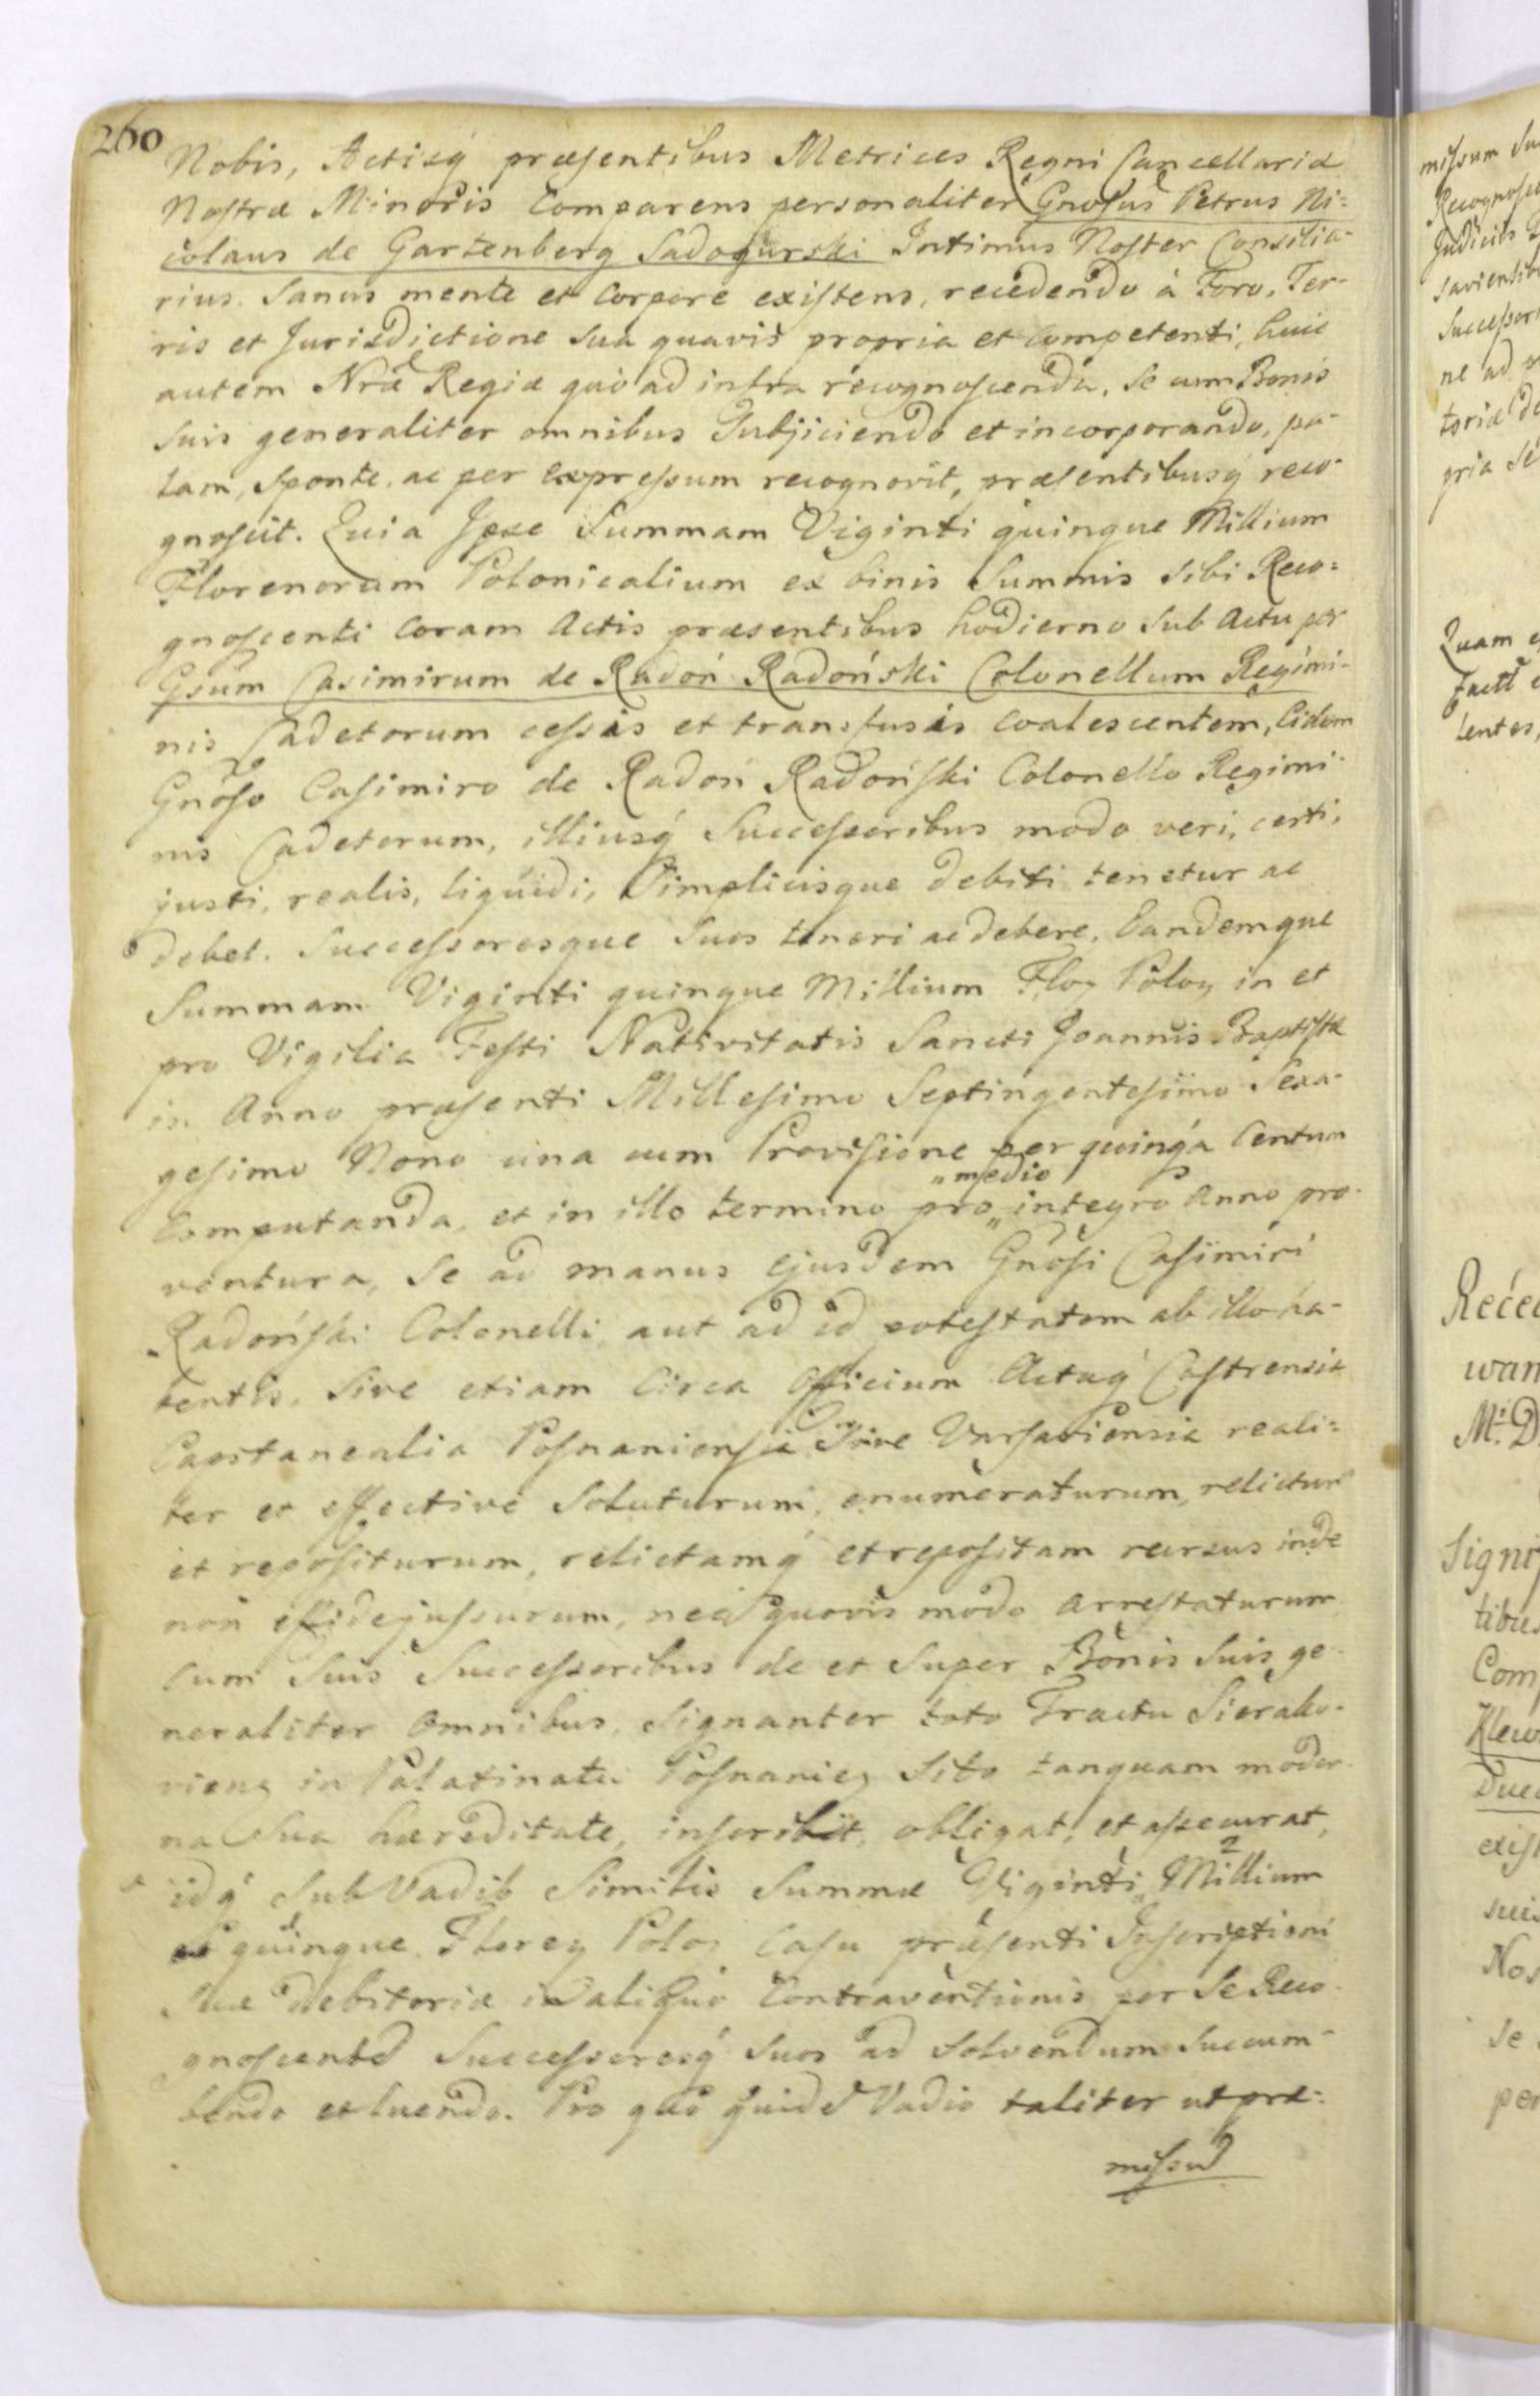 260
Nobis, Actisq́ præsentibus Metrices Regni Cancellariæ
Nostræ Minoris Comparens personaliter Gnosus Petrus Ni=
colaus de Gartenberg Sadogurski Intimus Noster Consilia-
rius. Sanus mente et Corpore existens, recedendo à Foro, Ter-
ris et Jurisdictione sua quavis propria et competenti, huic
autem Nræ Regiæ quo ad infra recognoscenda, se cum Bonis
suis generaliter omnibus Subjiciendo et incorporando, pa-
lam, sponte, ac per Expressum recognovit, præsentibusq́ reco-
gnoscit. Quia Ipse Summam Viginti quinque Millium
Florenorum Polonicalium ex binis Summis sibi Reco=
gnoscenti coram Actis præsentibus hodierno sub Actu per
Gsum Casimirum de Radoń Radoński Colonellum Regimi-
nis Cadetorum cessis et transfusis coalescentem, Eidem
Gnoso Casimiro de Radoń Radoński Colonello Regimi-
nis Cadetorum, illiusq́ Successoribus modo veri, certi,
justi, realis, liquidi, Simplicisque debiti tenetur ac
debet. Successoresque suos teneri ac debere. Eandemque
Summam Viginti quinque Millium Flor Polon in et
pro Vigilia Festi Nativitatis Sancti Joannis Baptistæ
in Anno præsenti Millesimo Septingentesimo Sexa-
gesimo Nono una cum Provisione per quinq́a Centum
„medio
Computanda, et in illo termino pro„ integro Anno pro-
ventura, se ad manus ejusdem Gnosi Casimiri
Radoński Colonelli aut ad id potestatem ab illo ha-
bentis, sive etiam Circa Officium Actaq́ Castrensia
Capitanealia Posnaniensia sive Varsaviensia reali=
ter et effective soluturum, enumeraturum, relictur
et repositurum, relictamq́ et repositam rursus inde
non effidejussurum, nec quovis modo arrestaturum
cum suis Successoribus de et super Bonis suis ge-
neraliter omnibus, signanter toto Tractu Sierako-
viens in Palatinatu Posnanien sito tanquam moder-
na sua hæreditate, inscribit, obligat, et assecurat,
idq́ sub Vadio similis Summæ Viginti 2 Millium
quinque Floren Polon Casu præsenti Inscriptioni
suæ debitoriæ in aliquo Contraventionis per se Reco-
gnoscente Successoresq́ suos ad solvendum succum-
bendo et luendo. Pro quo quide Vadio taliter ut præ=
misso
missum
Recognosc
Judicii
saviensib
Successor
ne ad
toriæ
pria se
Quam
Factt
tentes,
wan
M: D
Signi
tibus
Com
Klew
exis
suis
Nos
se
per